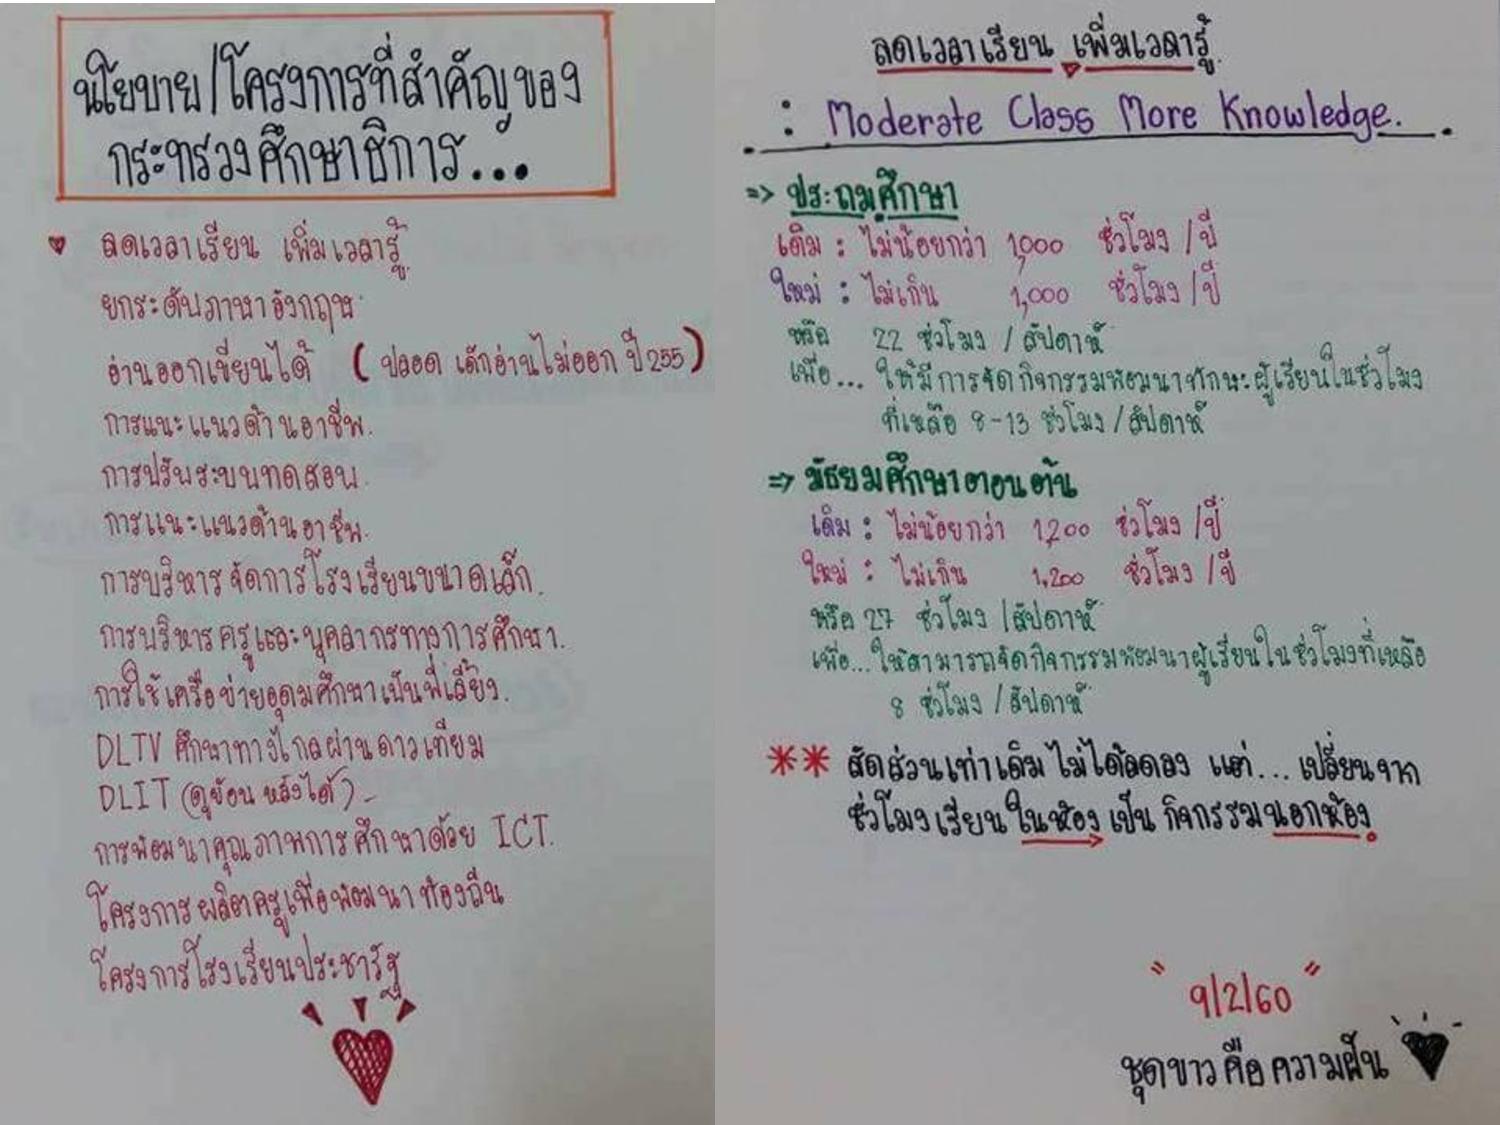 นโยบาย/โครงการที่สำคัญของ
กระทรวงศึกษาธิการ...
ลดเวลาเรียน เพิ่มเวลารู้
ยกระดับภาษาอังกฤษ
อ่านออกเขียนได้ (ปลอดเด็กอ่านไม่ออก ปี 255)
การแนะแนวด้านอาชีพ.
การปรับระบบทดสอบ.
การแนะแนวด้านอาชีพ.
การบริหารจัดการโรงเรียนขนาดเล็ก.
การบริหารครูและบุคลากรทางการศึกษา.
การใช้เครือข่ายอุดมศึกษาเป็นพี่เลี้ยง.
DLTV ศึกษาทางไกลผ่านดาวเทียม
DLIT (ดูย้อนหลังได้)
การพัฒนาคุณภาพการศึกษาด้วย ICT.
โครงการผลิตครูเพื่อพัฒนาท้องถิ่น
โครงการโรงเรียนประชารัฐ
ลดเวลาเรียน เพิ่มเวลารู้
: Moderate Class More Knowledge.
=> ประถมศึกษา
เดิม : ไม่น้อยกว่า 1,000 ชั่วโมง/ปี
ใหม่ : ไม่เกิน 1,000 ชั่วโมง/ปี
หรือ 22 ชั่วโมง / สัปดาห์
เพื่อ... ให้มีการจัดกิจกรรมพัฒนาทักษะผู้เรียนในชั่วโมง
ที่เหลือ 8-13 ชั่วโมง/สัปดาห์
=> มัธยมศึกษาตอนต้น
เดิม : ไม่น้อยกว่า 1,200 ชั่วโมง/ปี
ใหม่ : ไม่เกิน 1,200 ชั่วโมง/ปี
หรือ 27 ชั่วโมง/สัปดาห์
เพื่อ...ให้สามารถจัดกิจกรรมพัฒนาผู้เรียนในชั่วโมงที่เหลือ
8 ชั่วโมง/สัปดาห์
** สัดส่วนเท่าเดิม ไม่ได้ลดลง แต่... เปลี่ยนจาก
ชั่วโมงเรียนในห้อง เป็น กิจกรรมนอกห้อง
" 9/2/60 "
ชุดขาวคือความฝัน